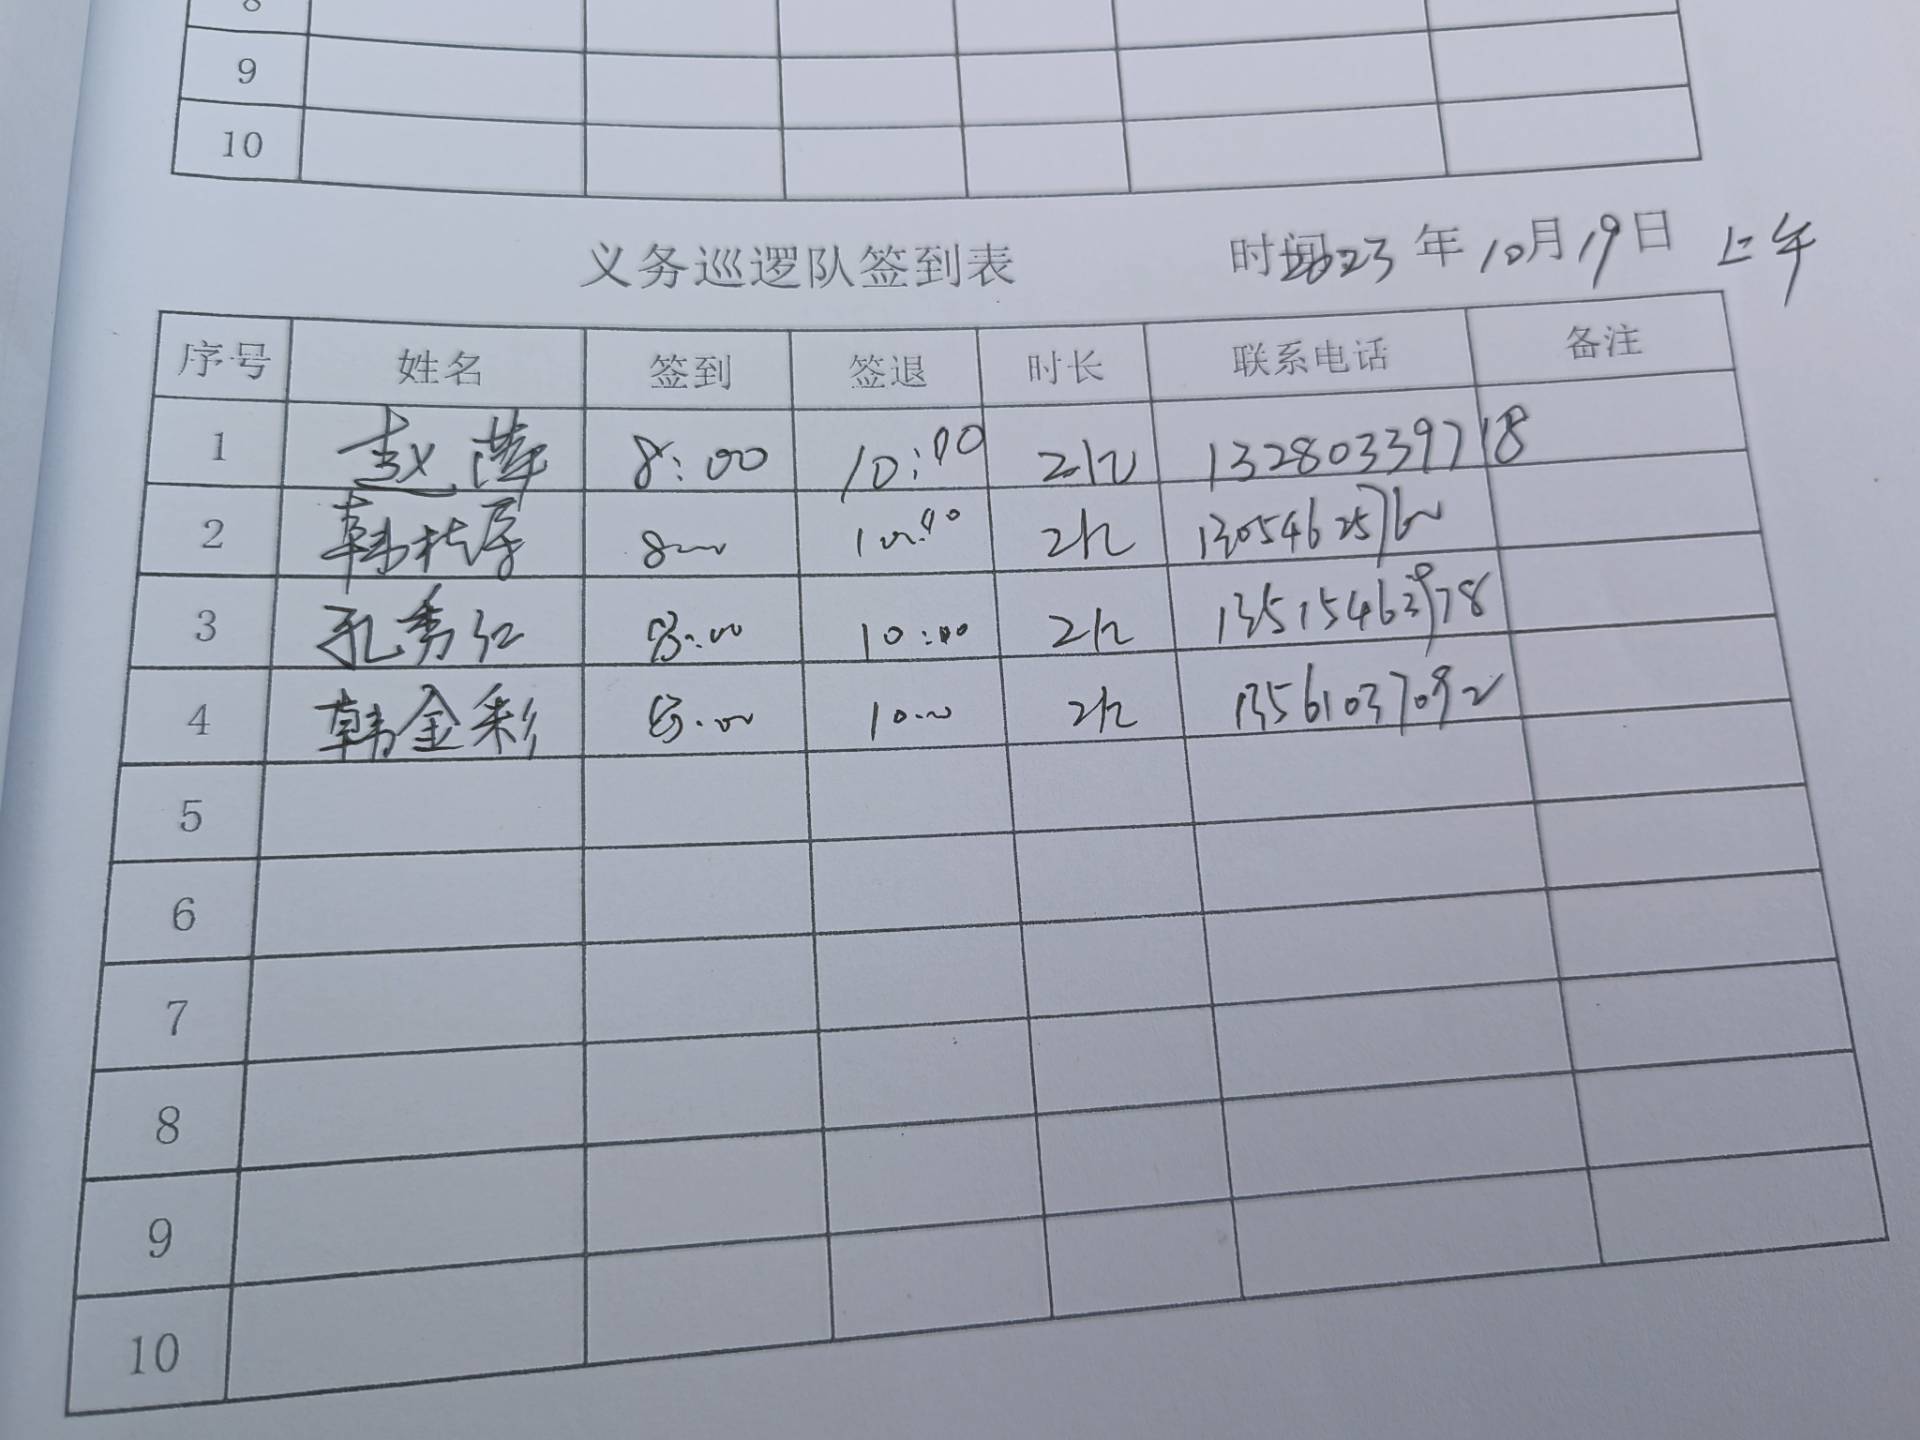 8
9
10
义务巡逻队签到表 时间2023年10月19日 上午
序号 姓名 签到 签退 时长 联系电话 备注
1 赵萍 8:00 10:00 2h 13280339718
2 韩 8:00 10:00 2h
3 孔秀红 8:00 10:00 2h
4 韩金彩 8:00 10:00 2h 13561037092
5
6
7
8
9
10